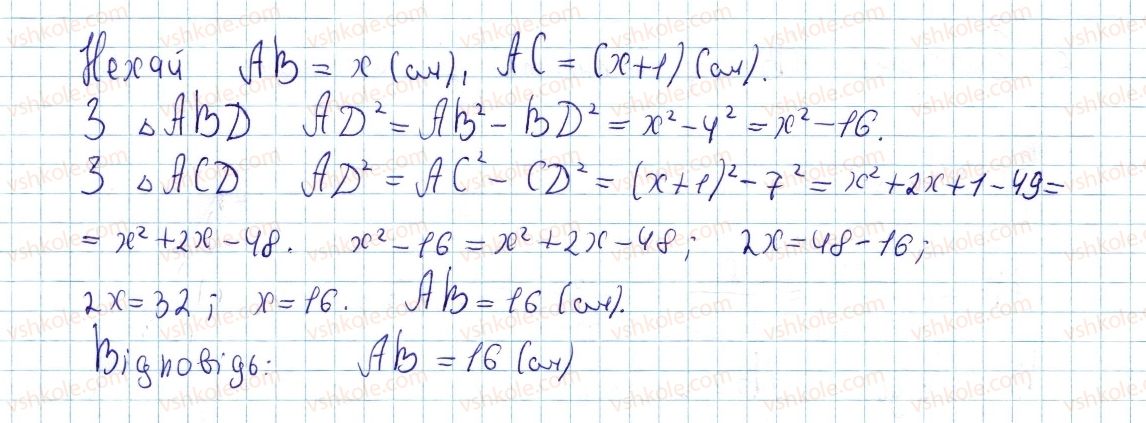 Нехай AB = x (см), AC = (x+1) (см).
З △ABD AD² = AB² - BD² = x² - 4² = x² - 16.
З △ACD AD² = AC² - CD² = (x+1)² - 7² = x² + 2x + 1 - 49 =
= x² + 2x - 48. x² - 16 = x² + 2x - 48; 2x = 48 - 16;
2x = 32; x = 16. AB = 16 (см).
Відповідь: AB = 16 (см)